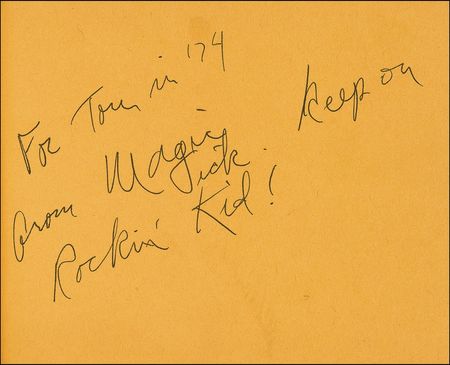 For Tom in '74
from Magic Dick. Keep on
Rockin' Kid!